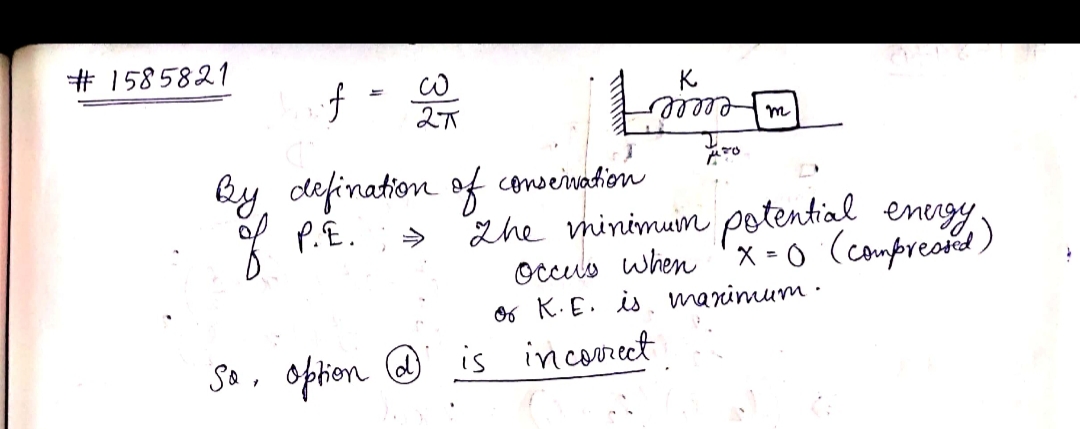 # 1585821
f = ω/2π
K
m
μ=0
By defination of conservation
of P.E. ; ⇒ The minimum potential energy,
occurs when x = 0 (compressed)
or K.E. is maximum.
So, option (d) is incorrect.